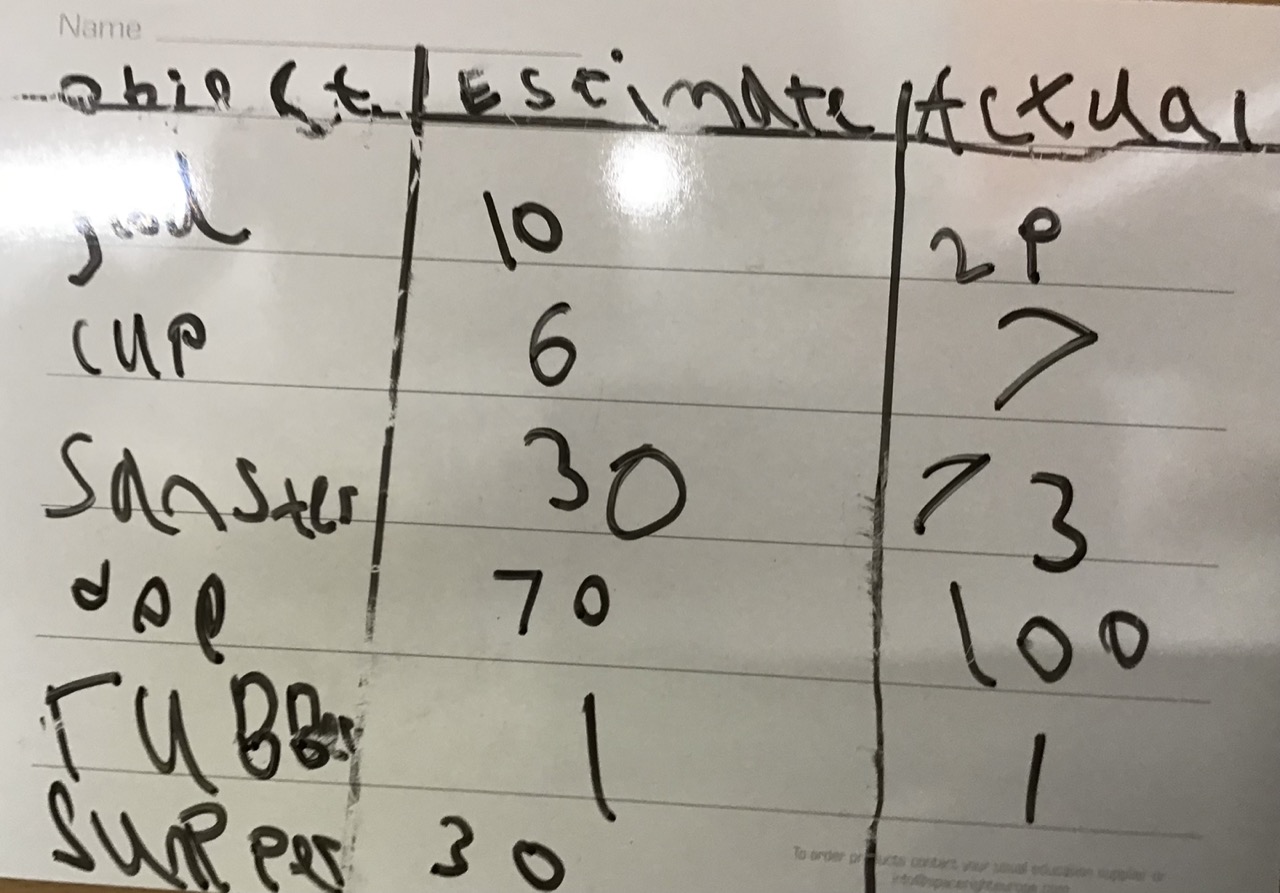 Name
object Estimate Actual
10 2P
cup 6 7
Sanster 30 73
70 100
TUBBer 1 1
Supper 30
To order products contact your usual education supplier or